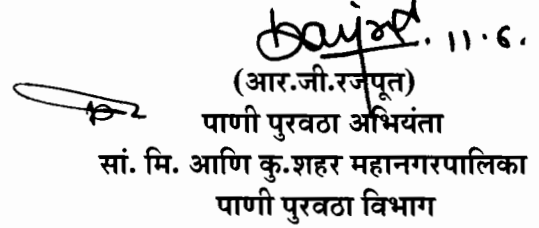 11.6.
(आर.जी.रजपूत)
पाणी पुरवठा अभियंता
सां. मि. आणि कु.शहर महानगरपालिका
पाणी पुरवठा विभाग